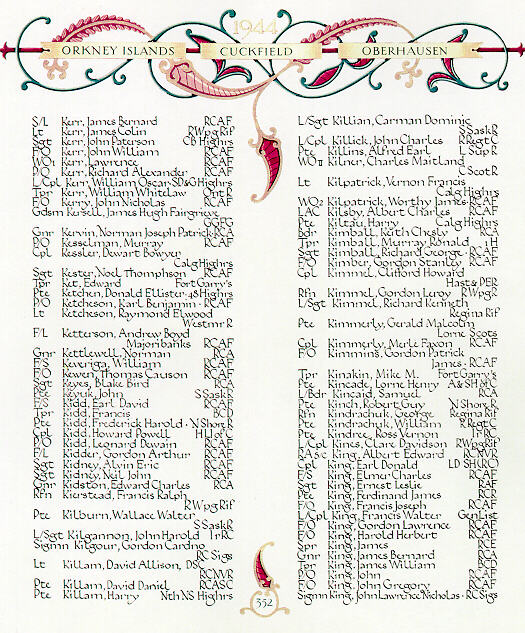 1944
ORKNEY ISLANDS CUCKFIELD OBERHAUSEN
S/L Kerr, James Bernard RCAF
Lt Kerr, James Colin RWpg Rif
Sgt Kerr, John Paterson CB Highrs
F/O Kerr, John William RCAF
WO1 Kerr, Lawrence RCAF
P/O Kerr, Richard Alexander RCAF
L/Cpl Kerr, William Oscar SD&G Highrs
Tpr Kerr, William Whitelaw Ont R
F/O Kerry, John Nicholas RCAF
Gdsm Kersell, James Hugh Fairgrieve
GGFG
Gnr Kervin, Norman Joseph Patrick RCA
P/O Kesselman, Murray RCAF
Cpl Kessler, Dewart Bowyer
Calg Highrs
Sgt Kester, Noel Thomphson RCAF
Tpr Ket, Edward Fort Garry's
Pte Ketchen, Donald Ellister 48 Highrs
P/O Ketcheson, Karl Benjamin RCAF
Lt Ketcheson, Raymond Elwood
Westmr R
F/L Ketterson, Andrew Boyd
Majoribanks RCAF
Gnr Kettlewell, Norman RCA
F/S Keveriga, William RCAF
F/O Kewen, Thomas Causon RCAF
Sgt Keyes, Blake Bird RCA
Pte Keyuk, John S Sask R
F/S Kidd, Earl David RCAF
Tpr Kidd, Francis BCD
Pte Kidd, Frederick Harold N Shor R
Cpl Kidd, Howard Powell H L I of C
P/O Kidd, Leonard Dewain RCAF
F/L Kidder, Gordon Arthur RCAF
Sgt Kidney, Alvin Eric RCAF
Sgt Kidney, Neil John RCAF
Gnr Kidston, Edward Charles RCA
Rfn Kierstead, Francis Ralph
RWpg Rif
Pte Kilburn, Wallace Walter
S Sask R
L/Sgt Kilgannon, John Harold Ir RC
Sigmn Kilgour, Gordon Cardno
RC Sigs
Lt Killam, David Allison, DSC
RCNVR
Pte Killam, David Daniel RCASC
Pte Killam, Harry Nth NS Highrs
L/Sgt Killian, Carman Dominic
S Sask R
L/Cpl Killick, John Charles R Regt C
Pte Killins, Alfred Earl L Sup R
WO II Kilner, Charles Maitland
C Scot R
Lt Kilpatrick, Vernon Francis
Calg Highrs
WO2 Kilpatrick, Worthy James RCAF
LAC Kilsby, Albert Charles RCAF
Pte Kiltau, Harry Calg Highrs
Bdr Kimball, Keith Chesly RCA
Tpr Kimball, Murray Ronald 1 H
Sgt Kimball, Richard George RCAF
F/O Kimber, Gordon Stanley RCAF
Cpl Kimmel, Clifford Howard
Hast & PER
Rfn Kimmel, Gordon Leroy RWpg R
L/Sgt Kimmel, Richard Kenneth
Regina Rif
Pte Kimmerly, Gerald Malcolm
Lorne Scots
Cpl Kimmerly, Merle Faxon RCAF
F/O Kimmins, Gordon Patrick
James RCAF
Tpr Kinakin, Mike M. Fort Garry's
Pte Kincade, Lorne Henry A & SH of C
L/Bdr Kincaid, Samuel RCA
Pte Kinch, Robert Guy N Shor R
Rfn Kindrachuk, George Regina Rif
Pte Kindrachuk, William R Regt C
Pte Kindree, Ross Vernon Ir RC
L/Cpl Kines, Clare Davidson RWpg Rif
RA 3/c King, Albert Edward RCNVR
Cpl King, Earl Donald LD SH (RC)
F/S King, Elmer Charles RCAF
Sgt King, Ernest Leslie RAF
Pte King, Ferdinand James RCR
F/O King, Francis Joseph RCAF
L/Cpl King, Francis Walter Gen List
F/O King, Gordon Lawrence RCAF
F/O King, Harold Herbert RCAF
Spr King, James RCE
Gnr King, James Bernard RCA
Tpr King, James William BCD
P/O King, John RCAF
F/O King, John Gregory RCAF
Sigmn King, John Lawrence Nicholas RC Sigs
352